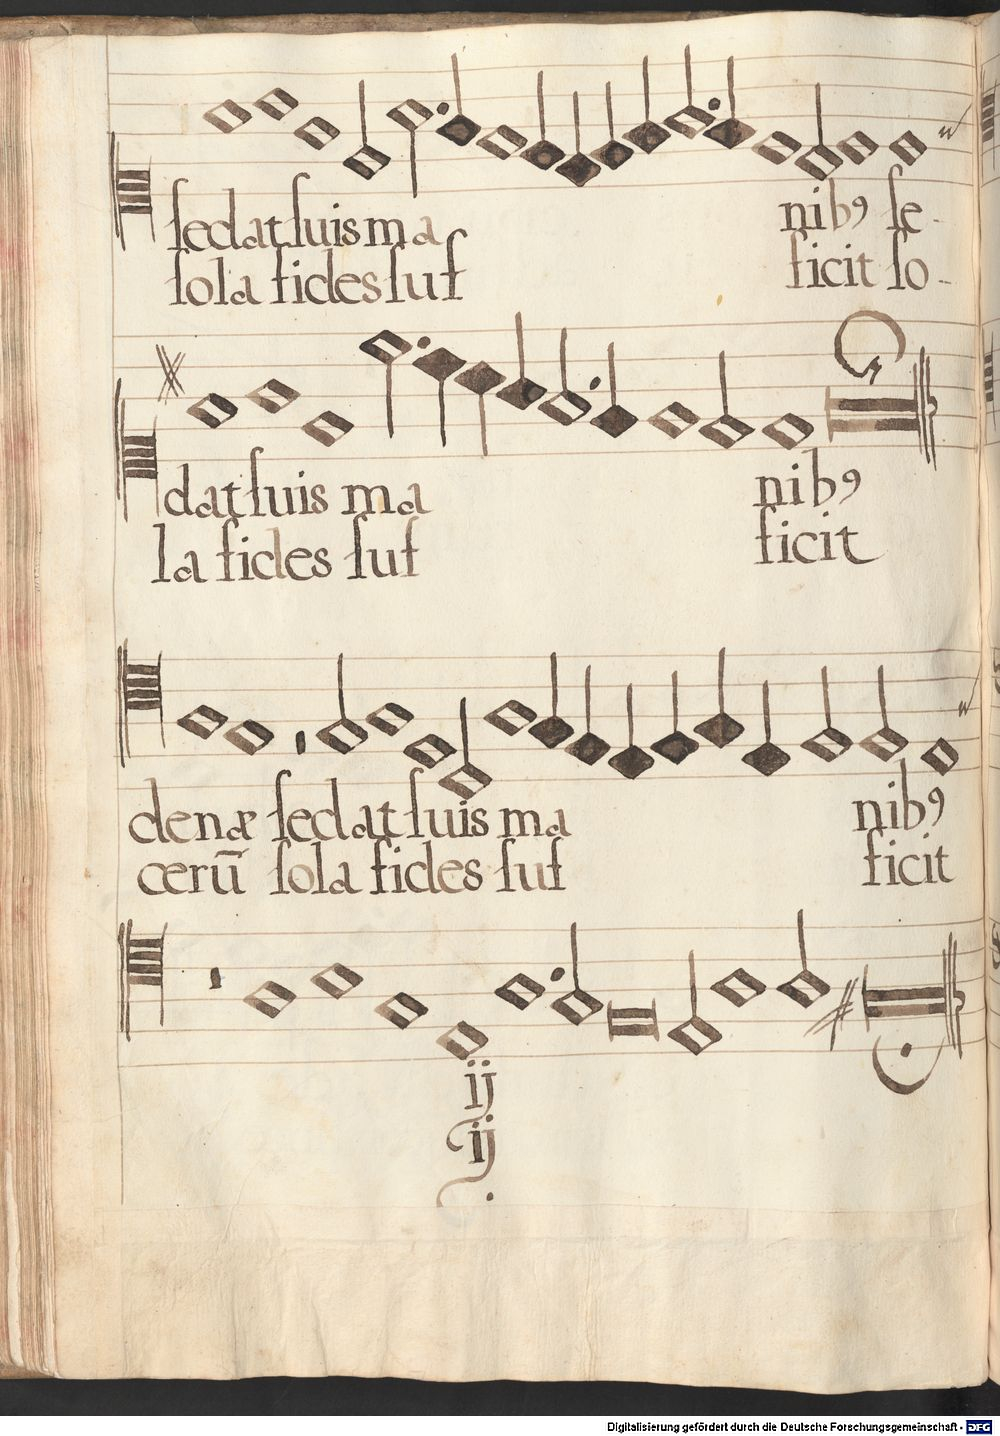 sedat suis ma nibꝰ se-
sola fides suf ficit so-
dat suis ma nibꝰ
la fides suf ficit
denæ sedat suis ma nibꝰ
cerū sola fides suf ficit
ij
ij
Digitalisierung gefördert durch die Deutsche Forschungsgemeinschaft - DFG